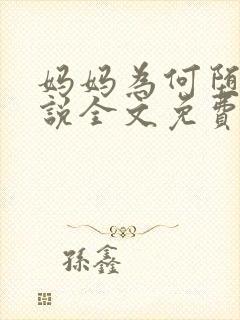 妈妈為何堕
説全文免費
孫鑫